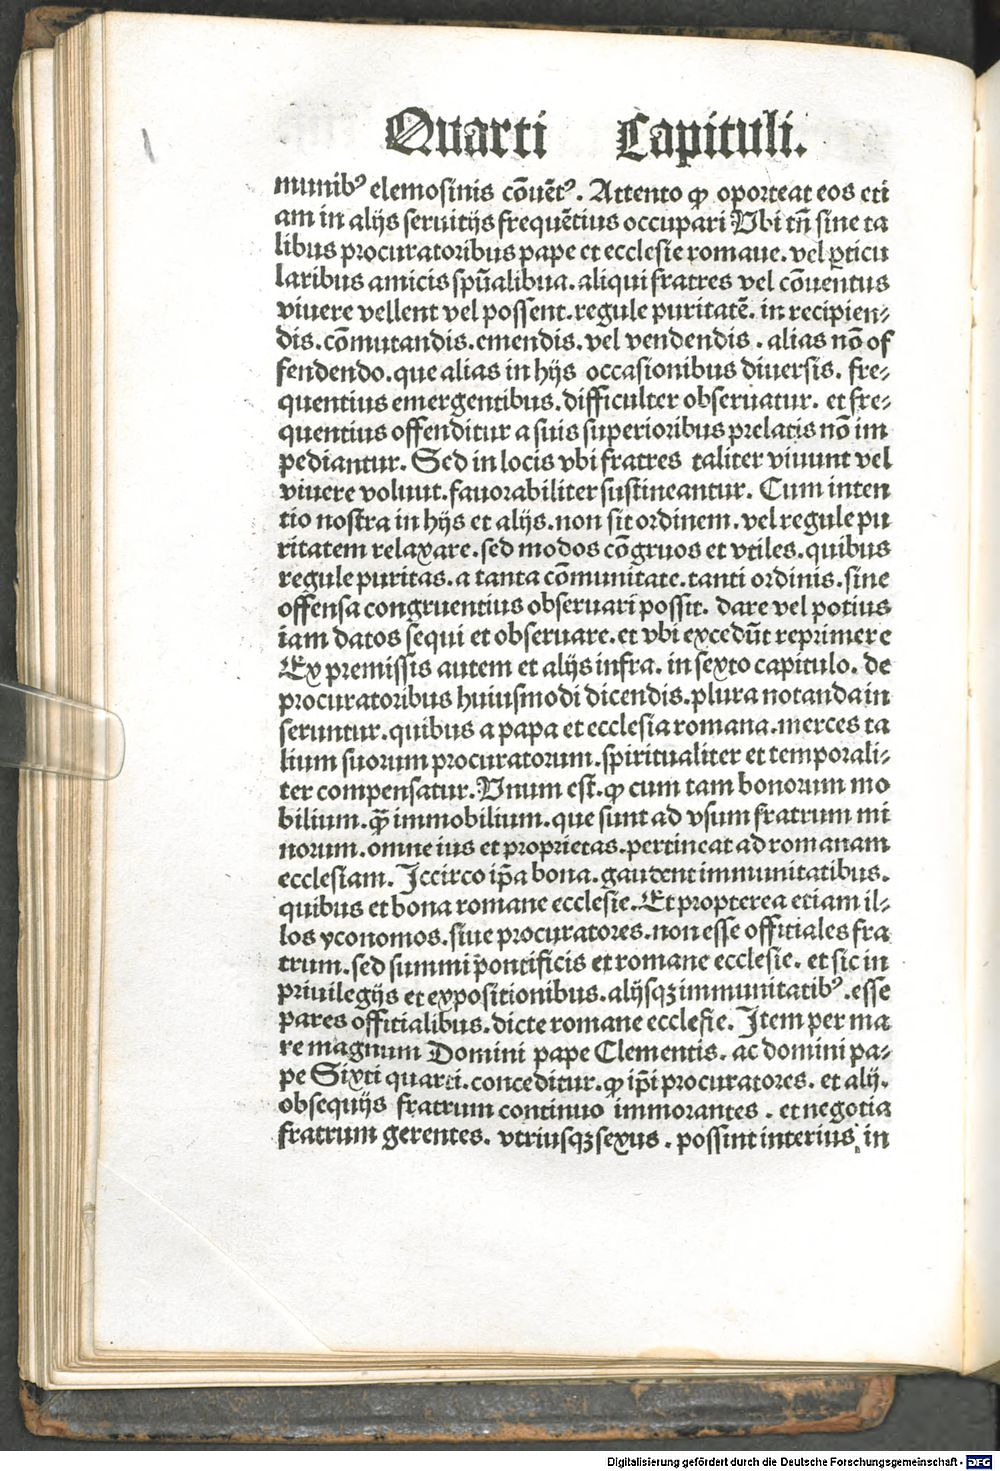 Quarti Capituli.
munibꝰ elemosinis cōuēt̄ꝰ. Attento ꝙ oporteat eos eti
am in alijs seruitijs frequētius occupari Vbi tn̄ sine ta
libus procuratoribus pape et ecclesie romaue. vel ꝑticu
laribus amicis spūalibua. aliqui fratres vel cōuentus
viuere vellent vel possent. regule puritatē. in recipien⸗
dis. cōmutandis. emendis. vel vendendis. alias nō of
fendendo. que alias in hijs occasionibus diuersis. fre⸗
quentius emergentibus. difficulter obseruatur. et fre⸗
quentius offenditur a suis superioribus prelatis nō im
pediantur. Sed in locis vbi fratres taliter viuunt vel
viuere voluut. fauorabiliter sustineantur. Cum inten
tio nostra in hijs et alijs. non sit ordinem. vel regule pu
ritatem relaxare. sed modos cōgruos et vtiles. quibus
regule puritas. a tanta cōmunitate. tanti ordinis. sine
offensa congruentius obseruari possit. dare vel potius
iam datos sequi et obseruare. et vbi excedūt reprimere
Ex premissis autem et alijs infra. in sexto capitulo. de
procuratoribus huiusmodi dicendis. plura notanda in
seruntur. quibus a papa et ecclesia romana. merces ta
lium suorum procuratorum. spiritualiter et temporali⸗
ter compensatur. Vnum est. ꝙ cum tam bonorum mo
bilium. ꝙ̄ immobilium. que sunt ad vsum fratrum mi
norum. omne ius et proprietas. pertineat ad romanam
ecclesiam. Iccirco ip̄a bona. gaudent immunitatibus.
quibus et bona romane ecclesie. Et propterea etiam il⸗
los yconomos. siue procuratores. non esse offitiales fra
trum. sed summi pontificis et romane ecclesie. et sic in
priuilegijs et expositionibus. alijsqꝫ immunitatibꝰ. esse
pares offitialibus. dicte romane ecclesie. Item per ma
re magnum Domini pape Clementis. ac domini pa⸗
pe Sixti quarti. conceditur. ꝙ ip̄i procuratores. et alij.
obsequijs fratrum continuo immorantes. et negotia
fratrum gerentes. vtriusqꝫ sexus. possint interius in
Digitalisierung gefördert durch die Deutsche Forschungsgemeinschaft - DFG